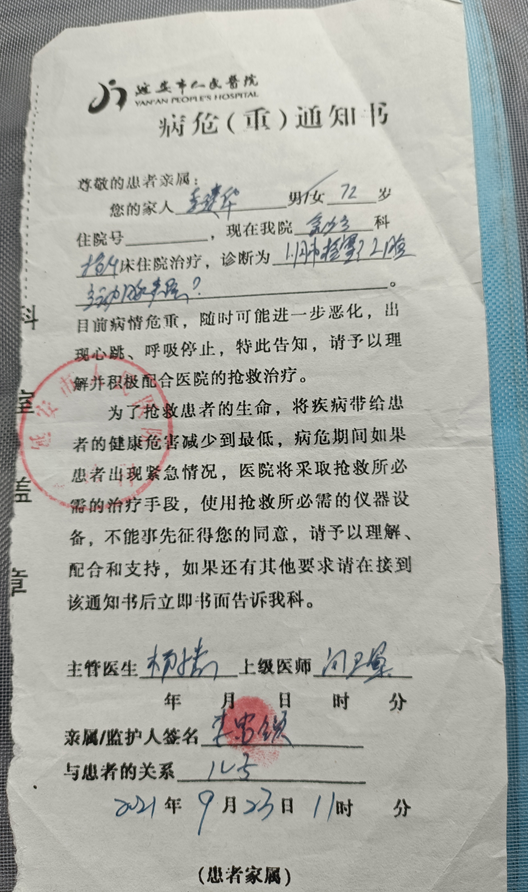 延安市人民医院
YAN'AN PEOPLE'S HOSPITAL
病危(重)通知书
尊敬的患者亲属:
您的家人 男/女 72 岁
住院号 ,现在我院 科
床住院治疗,诊断为 1.肺栓塞? 2.
主动脉夹层?。
目前病情危重,随时可能进一步恶化,出
现心跳、呼吸停止,特此告知,请予以理
解并积极配合医院的抢救治疗。
为了抢救患者的生命,将疾病带给患
者的健康危害减少到最低,病危期间如果
患者出现紧急情况,医院将采取抢救所必
需的治疗手段,使用抢救所必需的仪器设
备,不能事先征得您的同意,请予以理解、
配合和支持,如果还有其他要求请在接到
该通知书后立即书面告诉我科。
主管医生 上级医师
年 月 日 时 分
亲属/监护人签名
与患者的关系 儿子
2021年 9月23日 11时 分
(患者家属)
科
室
盖
章